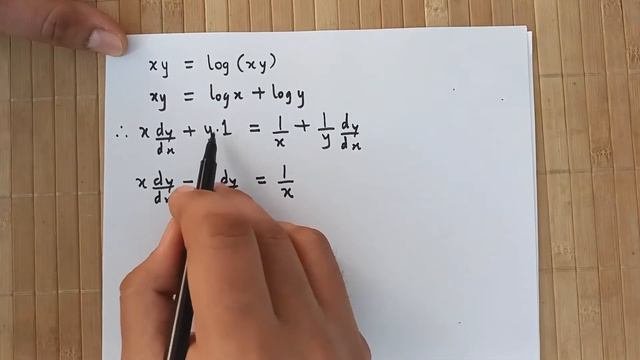 xy = log (xy)
xy = log x + log y
∴ x dy/dx + y·1 = 1/x + 1/y dy/dx
x dy/dx − dy = 1/x